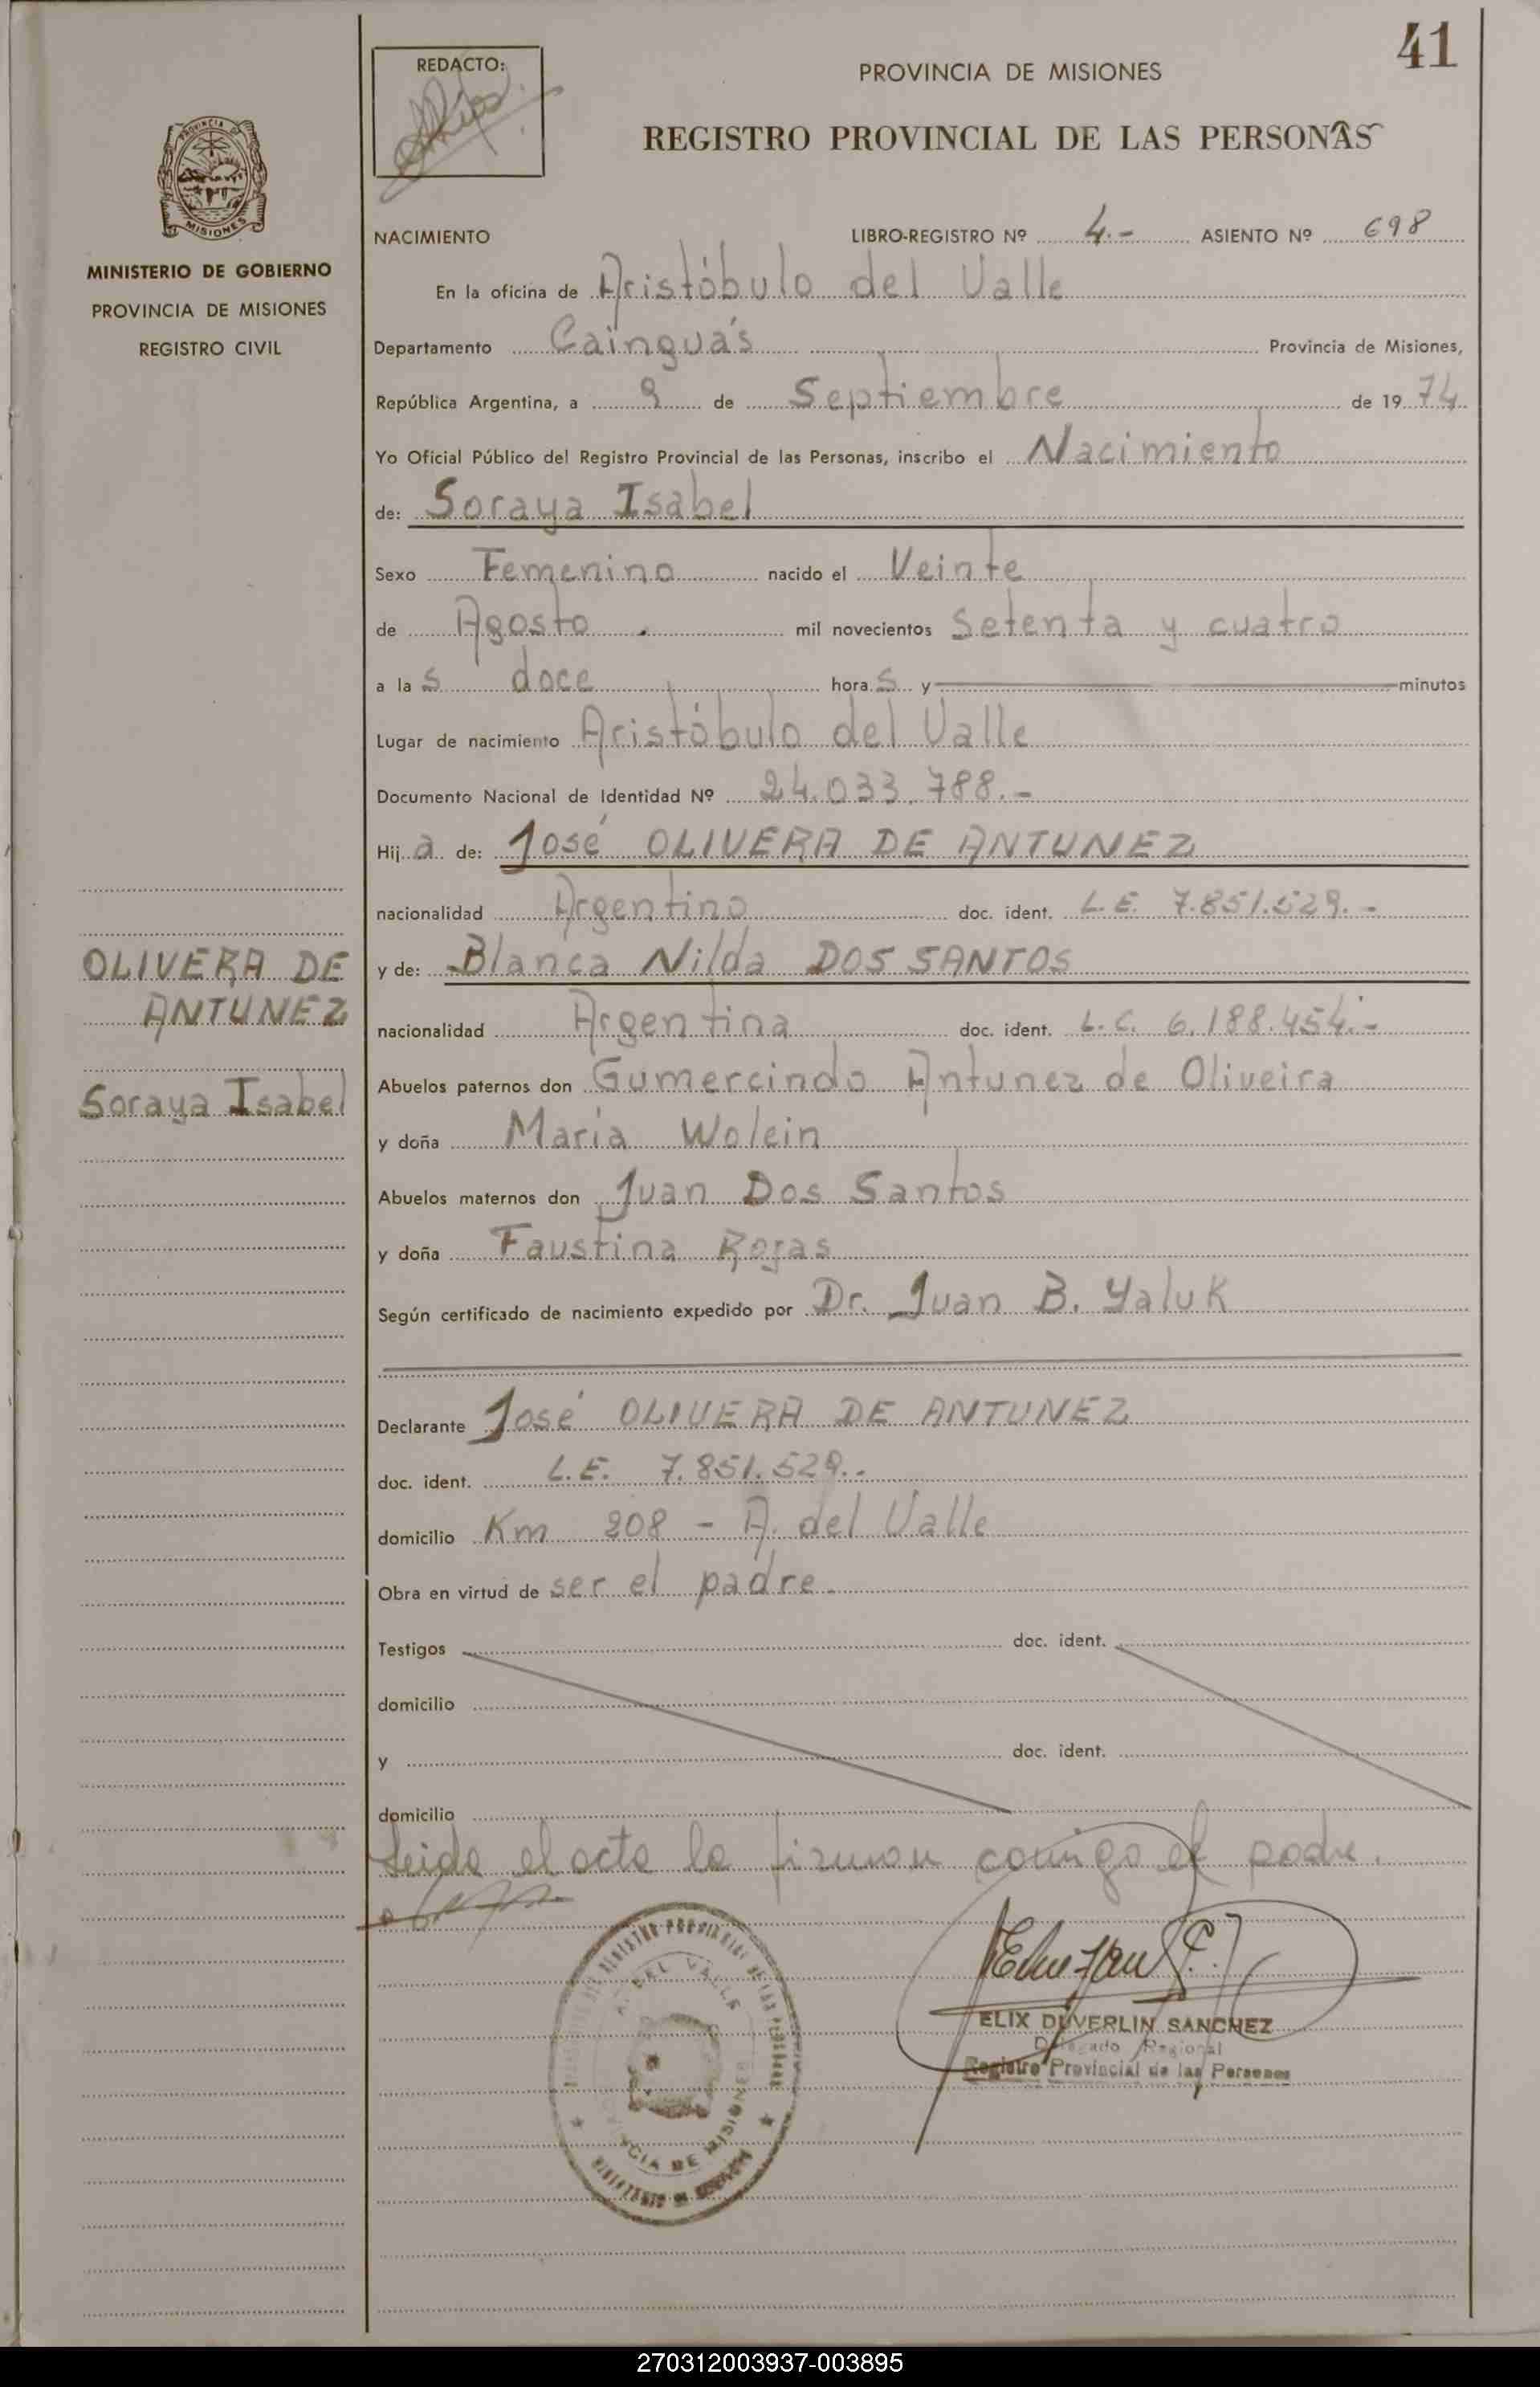 41
REDACTO:
PROVINCIA DE MISIONES
REGISTRO PROVINCIAL DE LAS PERSONAS
PROVINCIA D
MISIONES
MINISTERIO DE GOBIERNO
PROVINCIA DE MISIONES
REGISTRO CIVIL
NACIMIENTO LIBRO-REGISTRO Nº 4.- ASIENTO Nº 698
En la oficina de Aristóbulo del Valle
Departamento Cainguás Provincia de Misiones,
República Argentina, a 9 de Septiembre de 1974
Yo Oficial Público del Registro Provincial de las Personas, inscribo el Nacimiento
de: Soraya Isabel
Sexo Femenino nacido el Veinte
de Agosto mil novecientos setenta y cuatro
a las doce horas y minutos
Lugar de nacimiento Aristóbulo del Valle
Documento Nacional de Identidad Nº 24.033.788.-
Hija de: José OLIVERA DE ANTUNEZ
nacionalidad Argentino doc. ident. L.E. 7.851.529.-
OLIVERA DE
ANTUNEZ
Soraya Isabel
y de: Blanca Nilda DOS SANTOS
nacionalidad Argentina doc. ident. L.C. 6.188.454.-
Abuelos paternos don Gumercindo Antunez de Oliveira
y doña María Wolein
Abuelos maternos don Juan Dos Santos
y doña Faustina Rojas
Según certificado de nacimiento expedido por Dr. Juan B. Yaluk
Declarante José OLIVERA DE ANTUNEZ
doc. ident. L.E. 7.851.529.-
domicilio Km 208 - A. del Valle
Obra en virtud de ser el padre.
Testigos doc. ident.
domicilio
y doc. ident.
domicilio
Leida el acta la firman conmigo el padre.
A. DEL VALLE
CIA DE MISIONES
ELIX DUVERLIN SANCHEZ
Delegado Regional
Registro Provincial de las Personas
270312003937-003895